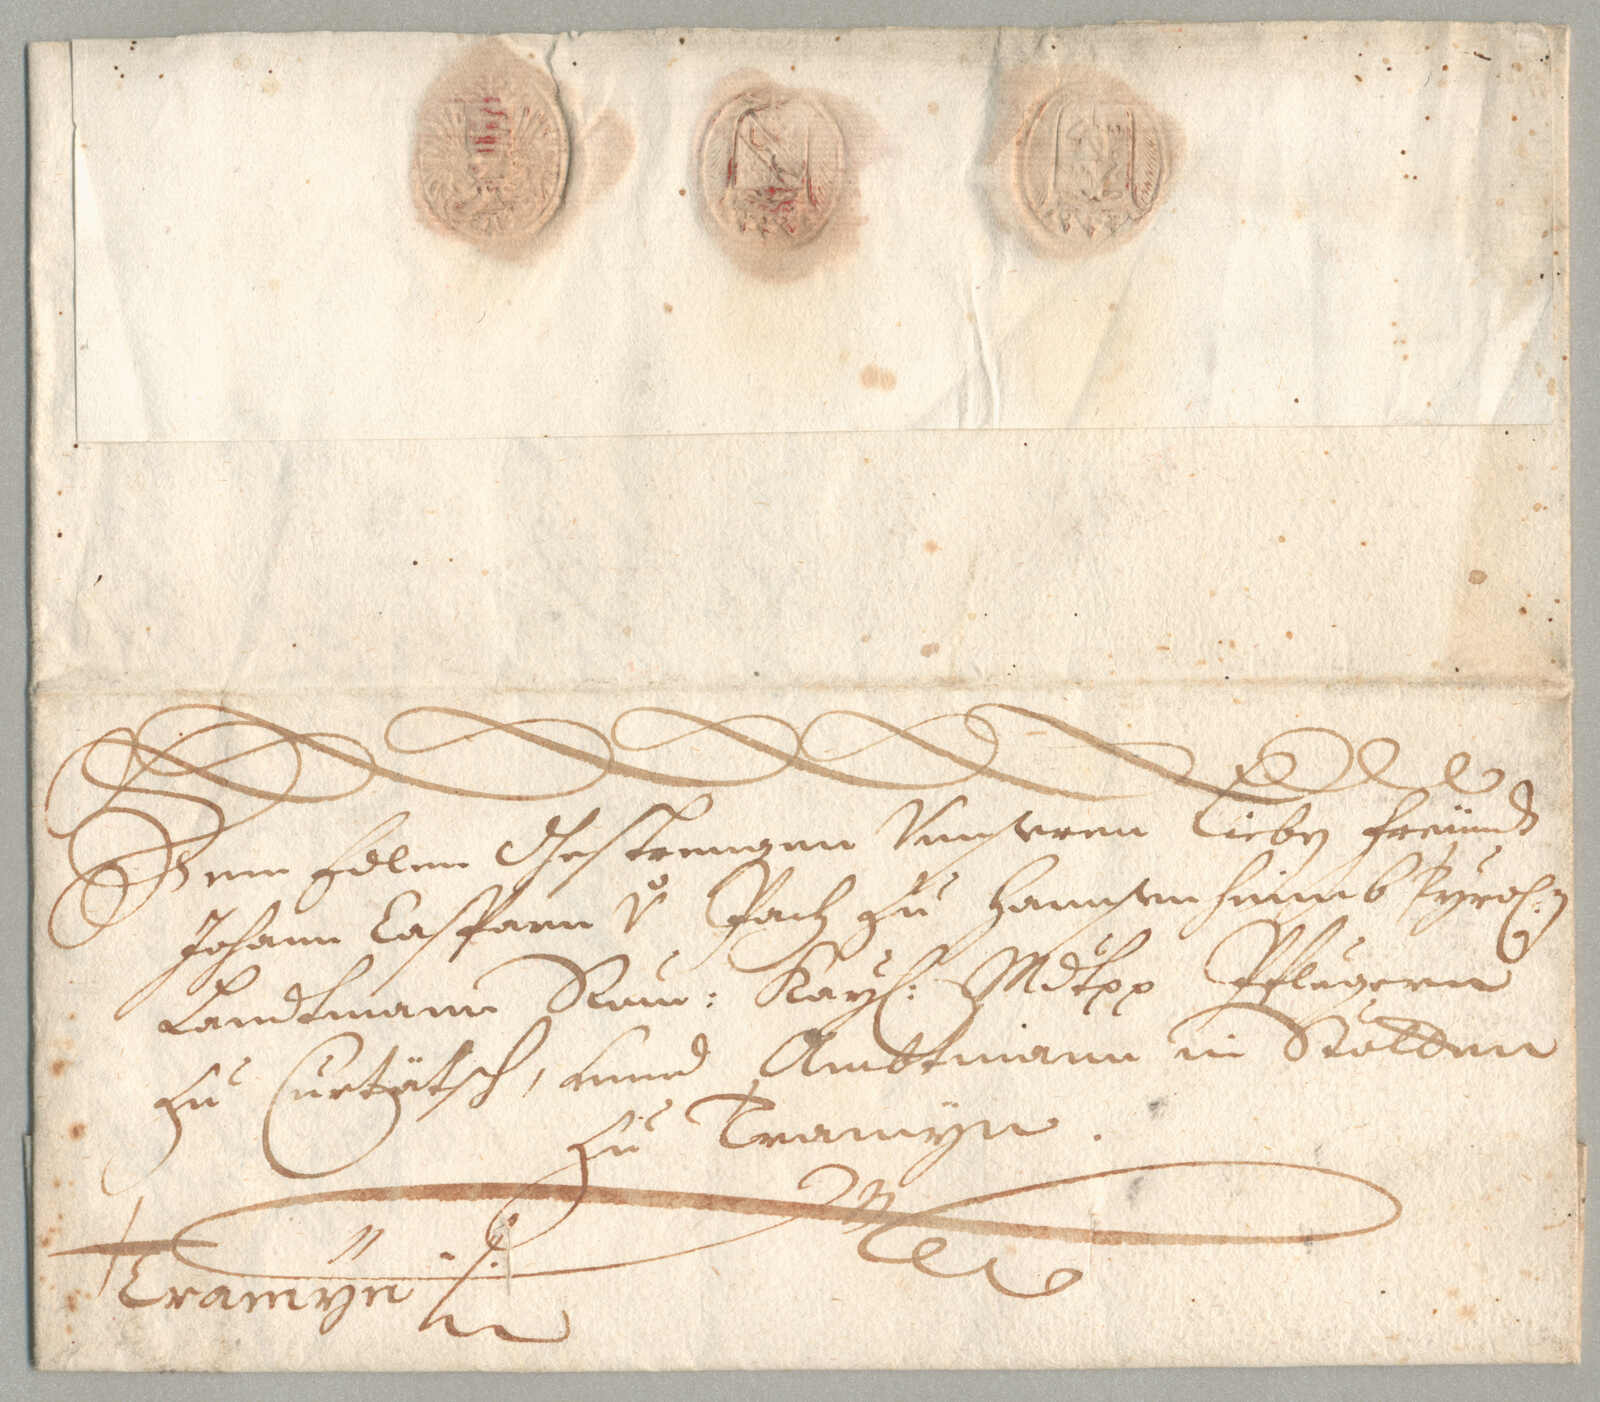 Dem Edlen Gestrengen Unnseren Lieben Freündt
Johann Casparn V: Pach zu Hannsenheimb Tyrol:
Landtmann Röm: Kays: Mdtpp Pflegern
zu Curtätsch, unnd Ambtmann in
zu Tramyn.
Tramyn